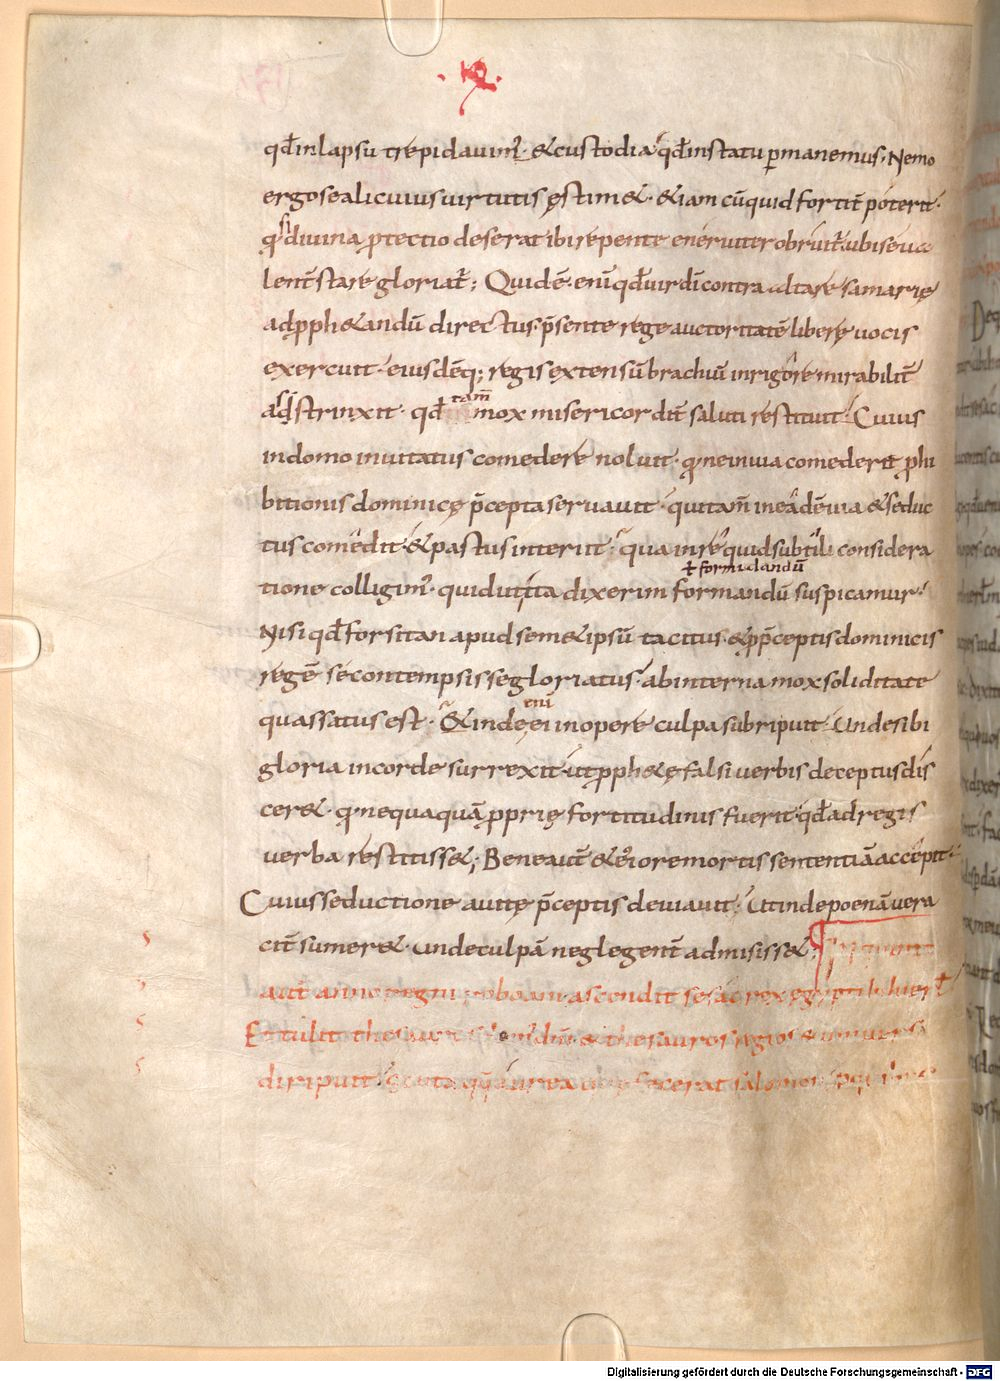 qđ inlapsu trepidauim᾽. &custodia qđ instatu ꝑmanemus. Nemo
ergo se alicuius uirtutis ęstim&. &iam cū quid fortit̄ poterit.
q᷒ si diuina ꝓtectio deserat ibi repente eneruiter obruit᷒. ubi se ua
lent̄ stare gloriat᷒; Quid ē enī qđ uir dī contra altare samarię
adꝓph&andū directus. p̄sente rege auctoritatē liberę uocis
exercuit. eiusdēq; regis extensū brachiū inrigore mirabilit̄
adstrinxit. qđ tam̄ mox misericordit̄ saluti restituit. Cuius
indomo inuitatus comedere noluit. q᷒ ne inuia comederit ꝓhi
bitionis dominicę p̄cepta seruauit. qui tam̄ inea dē uia &seduc
tus comedit. &pastus interiit. qua inre quid subtili considera
ł formidandū
tione colligim᾽. quid ut ita dixerim formandū suspicamur.
Nisi qđ forsitan apud sem&ipsū tacitus. &ꝓp̄ceptis dominicis
regē se contempsisse gloriatus. abinterna mox soliditate
quassatus est. &inde enī ei inopere culpa subripuit. Unde sibi
gloria incorde surrexit. ut ꝓph&ę falsi uerbis deceptus dis
cer&. q᷒ nequaquā ꝓprię fortitudinis fuerit. qđ adregis
uerba restitiss&; Bene aut̄ &exiore mortis sententiā accepit.
Cuius seductione a uitę p̄ceptis deuiauit. Ut inde poenā uera
cit̄ sumer&. unde culpā neglegent̄ admisiss&;
aut̄ anno regni roboam ascendit sesac rex ęgypti hierł
Et tulit thesauros domus dnī. & thesauros regios & uniuersa
diripuit. scuta quoque aurea que fecerat salomon
Digitalisierung gefördert durch die Deutsche Forschungsgemeinschaft - DFG